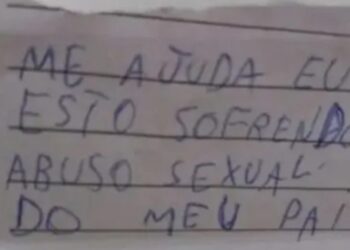 ME AJUDA EU
ESTO SOFRENDO
ABUSO SEXUAL.
DO MEU PAI